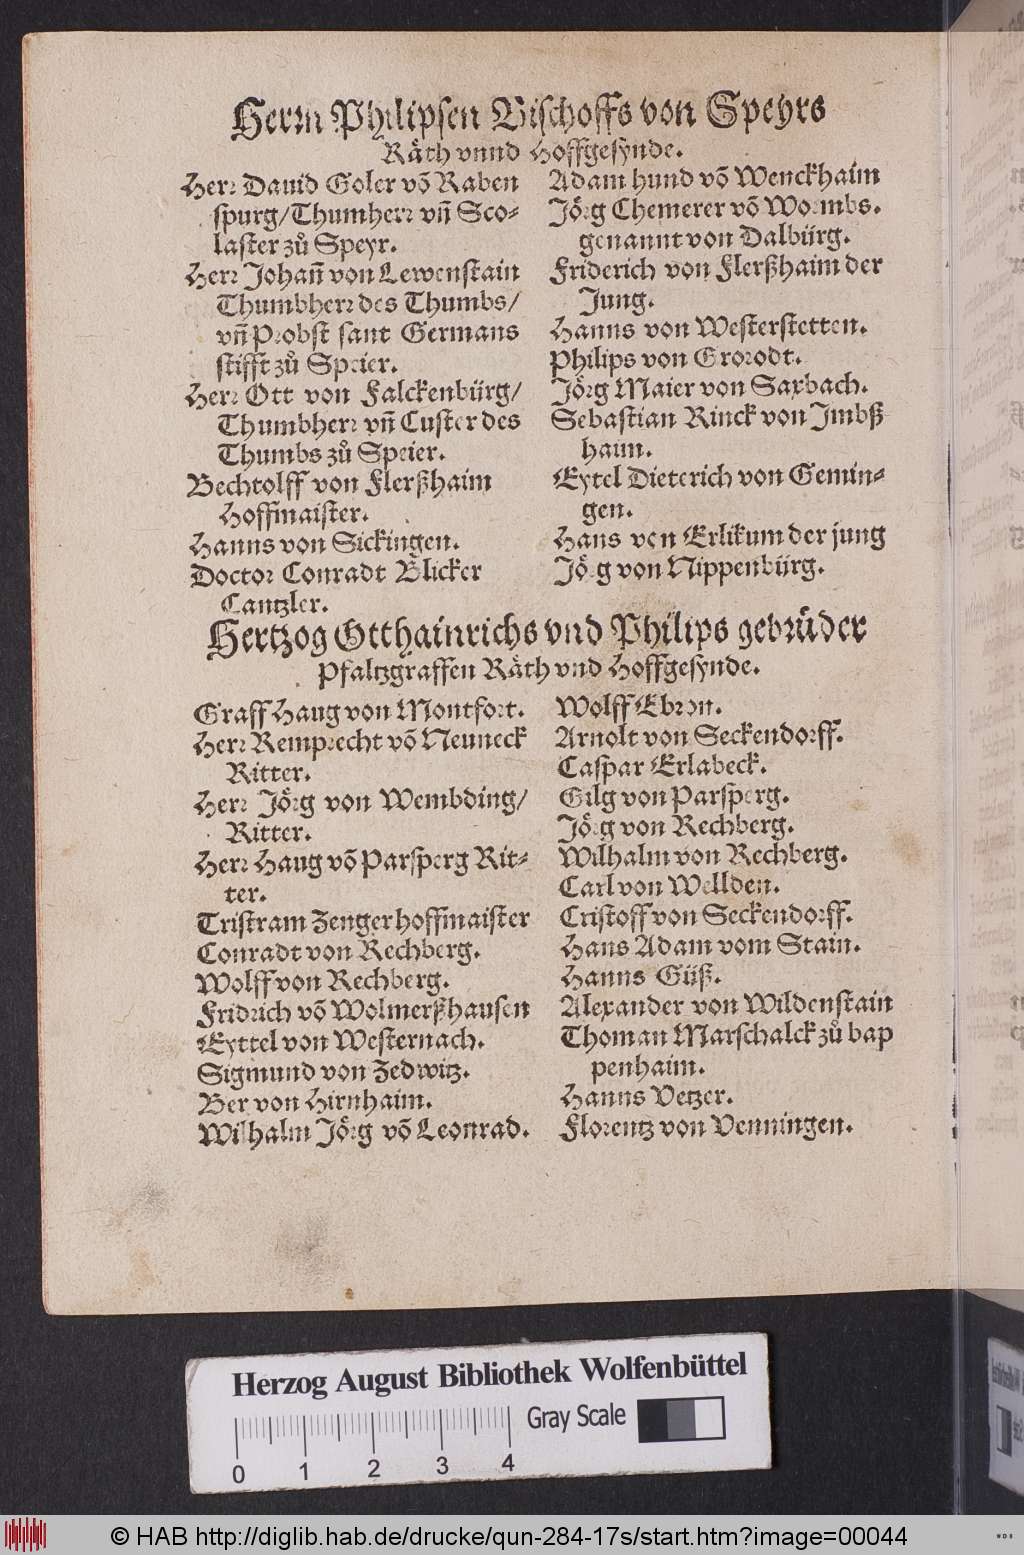 Herrn Philipsen Bischoffs von Speyrs
Räth vnnd Hoffgesynde.
Herr Dauid Goler võ Raben
spurg/Thumherr vñ Sco-
laster zů Speyr.
Herr Johañ von Lewenstain
Thumbherr des Thumbs/
vñ Probst sant Germans
stifft zů Speier.
Herr Ott von Falckenbürg/
Thumbherr vñ Custer des
Thumbs zů Speier.
Bechtolff von Flerßhaim
Hoffmaister.
Hanns von Sickingen.
Doctor Conradt Blicker
Cantzler.
Adam hund võ Wenckhaim
Jörg Chemerer võ Wormbs.
genannt von Dalbürg.
Friderich von Flerßhaim der
Jung.
Hanns von Westerstetten.
Philips von Crorodt.
Jörg Maier von Saxbach.
Sebastian Rinck von Jmbß
haim.
Eytel Dieterich von Gemin-
gen.
Hans von Erlikum der jung
Jörg von Nippenbürg.
Hertzog Otthainrichs vnd Philips gebrüder
Pfaltzgraffen Räth vnd Hoffgesynde.
Graff Haug von Montfort.
Herr Remprecht võ Neuneck
Ritter.
Herr Jörg von Wembding/
Ritter.
Herr Haug võ Parsperg Rit-
ter.
Tristram Zenger hoffmaister
Conradt von Rechberg.
Wolff von Rechberg.
Fridrich võ Wolmerßhausen
Eyttel von Westernach.
Sigmund von Zedwitz.
Ber von Hirnhaim.
Wilhalm Jörg võ Leonrad.
Wolff Ebron.
Arnolt von Seckendorff.
Caspar Erlabeck.
Gilg von Parsperg.
Jörg von Rechberg.
Wilhalm von Rechberg.
Carl von Wellden.
Cristoff von Seckendorff.
Hans Adam vom Stain.
Hanns Güß.
Alexander von Wildenstain
Thoman Marschalck zů bap
penhaim.
Hanns Vetzer.
Florentz von Venningen.
Herzog August Bibliothek Wolfenbüttel
Gray Scale
0 1 2 3 4
© HAB http://diglib.hab.de/drucke/qun-284-17s/start.htm?image=00044